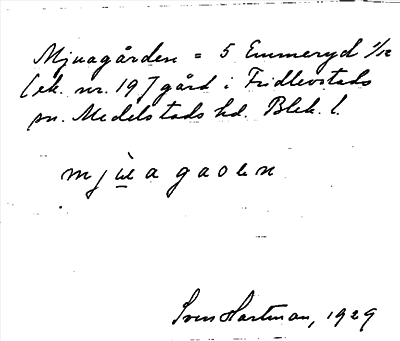 Mjuagården = 5 Emmeryd 1/12
(ek. nr. 19) gård i Fridlevstads
sn. Medelstads hd. Blek. l.
mju̲agaoen
Sven Hartman, 1929